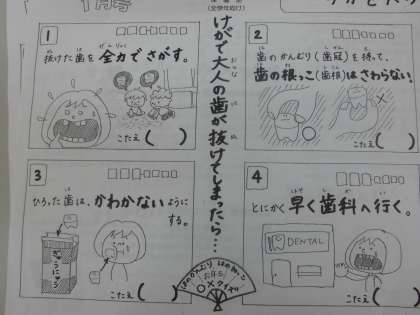 1月号
けがで大人の歯が抜けてしまったら…
1
抜けた歯を全力でさがす。
こたえ( )
2
歯のかんむり(歯冠)を持って、
歯の根っこ(歯根)はさわらない。
3
ひろった歯は、かわかないように
する。
ぎゅうにゅう
こたえ( )
4
とにかく早く歯科へ行く。
DENTAL
こたえ( )
○×クイズ